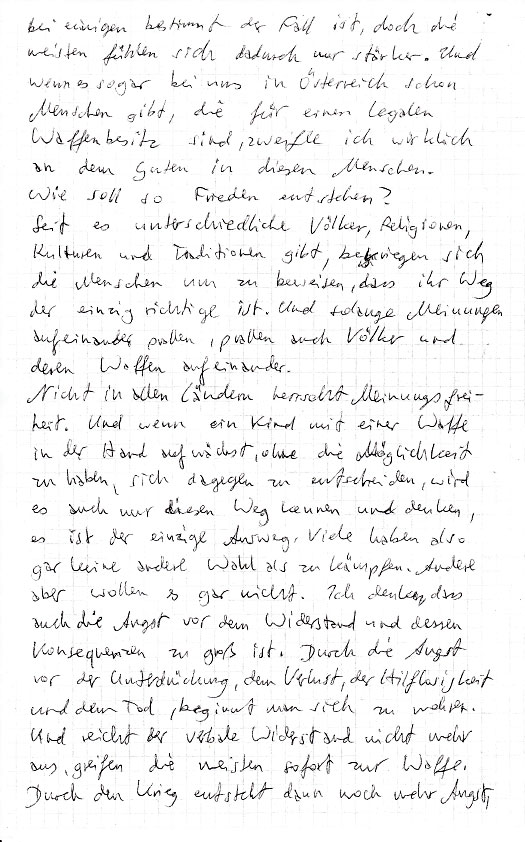 bei einigen bestimmt der Fall ist, doch die
meisten fühlen sich dadurch nur stärker. Und
wenn es sogar bei uns in Österreich schon
Menschen gibt, die für einen legalen
Waffenbesitz sind, zweifle ich wirklich
an dem Guten in diesen Menschen.
Wie soll so Frieden entstehen?
Seit es unterschiedliche Völker, Religionen,
Kulturen und Traditionen gibt, bekriegen sich
die Menschen um zu beweisen, dass ihr Weg
der einzig richtige ist. Und solange Meinungen
aufeinander prallen, prallen auch Völker und
deren Waffen aufeinander.
Nicht in allen Ländern herrscht Meinungsfrei-
heit. Und wenn ein Kind mit einer Waffe
in der Hand aufwächst, ohne die Möglichkeit
zu haben, sich dagegen zu entscheiden, wird
es auch nur diesen Weg kennen und denken,
es ist der einzige Ausweg. Viele haben also
gar keine andere Wahl als zu kämpfen. Andere
aber wollen es gar nicht. Ich denke, dass
auch die Angst vor dem Widerstand und dessen
Konsequenzen zu groß ist. Durch die Angst
vor der Unterdrückung, dem Verlust, der Hilflosigkeit
und dem Tod, beginnt man sich zu wehren.
Und reicht der verbale Widerstand nicht mehr
aus, greifen die meisten sofort zur Waffe.
Durch den Krieg entsteht dann noch mehr Angst,